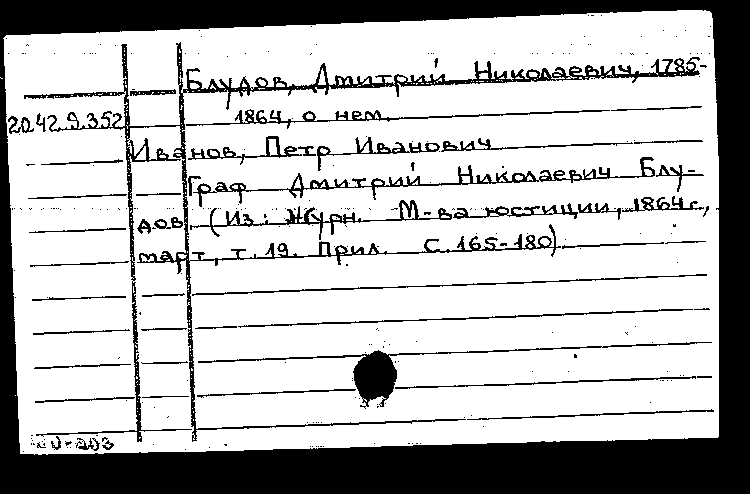 Блудов, Дмитрий Николаевич, 1785-
20.42.9.352 1864, о нем.
Иванов, Петр Иванович
Граф Дмитрий Николаевич Блу-
дов. (Из: Журн. М-ва юстиции, 1864 г.,
март, т. 19. Прил. С. 165-180).